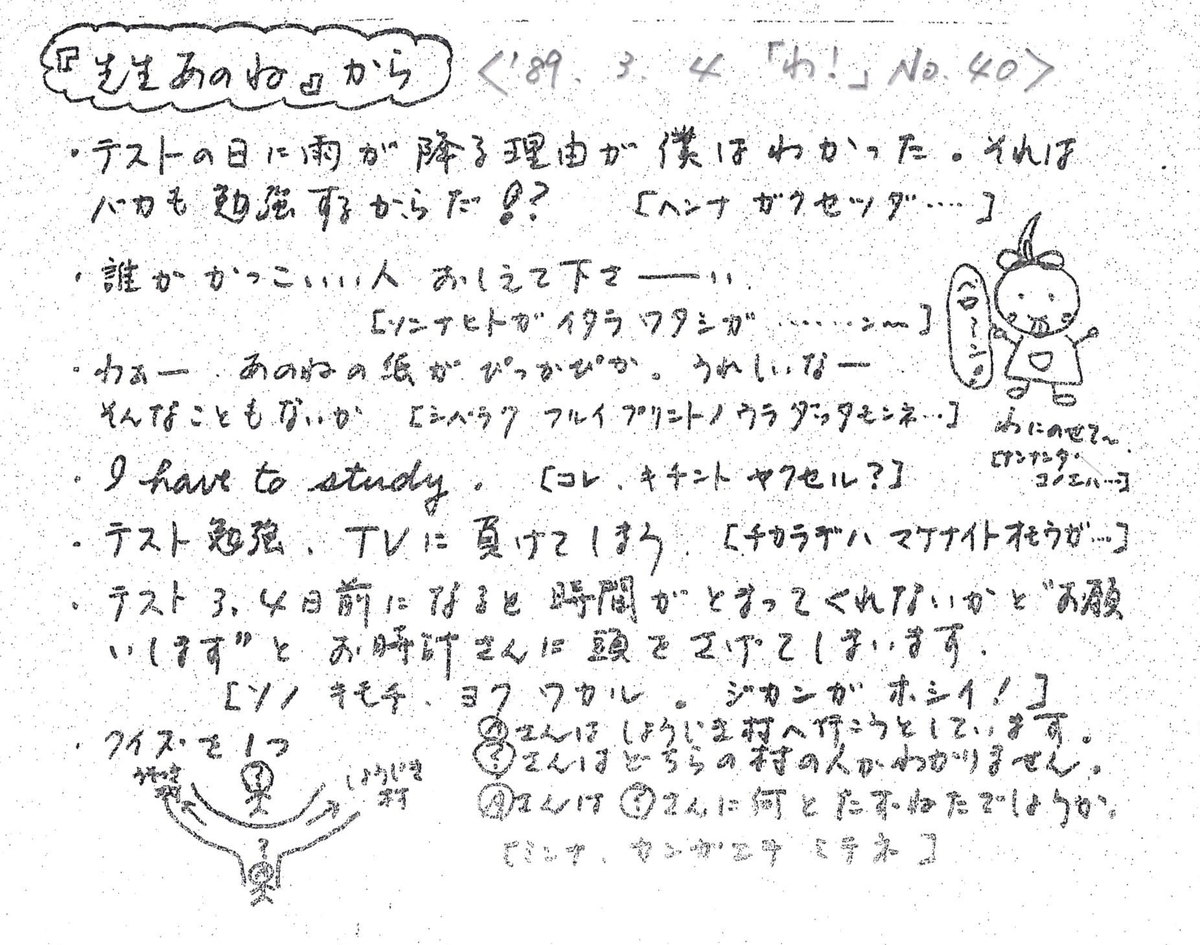 『先生あのね』から <'89. 3. 4 「わ!」No. 40>
・テストの日に雨が降る理由が僕はわかった。それは
バカも勉強するからだ!? [ヘンナ ガクセツダ‥‥]
・誰か かっこいいい人 おしえて下さ――い.
[ソンナヒトガ イタラ ワタシガ ‥‥‥ン〜]
・わぁー. あのねの紙がぴっかぴか。うれしいなー
そんなこともないか [シバラク フルイプリントノウラダッタモンネ…]
ベロ〜ン
わにのせて〜.
[ナンナンダ・
コノエハ…]
・I have to study. [コレ、キチント ヤクセル?]
・テスト勉強、TVに負けてしまう. [チカラデハ マケナイトオモウガ…]
・テスト3、4日前になると時間がとまってくれないかと"お願
いします"と お時計さんに頭をさげてしまいます.
[ソノ キモチ、ヨク ワカル。ジカンガ ホシイ!]
・クイズを1つ
うそつき村
しょうじき村
?
Aさんはしょうじき村へ行こうとしています。
?さんはどちらの村の人かわかりません。
Aさんは?さんに何とたずねたでしょうか.
[ミンナ、カンガエテ ミテネ]